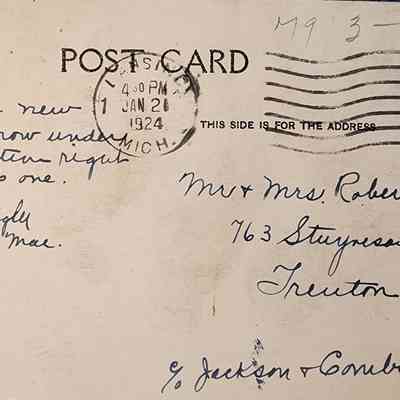 M9 3-
POST CARD
4 30 PM
1 JAN 21
1924
MICH.
THIS SIDE IS FOR THE ADDRESS
new
now under
right
one.
Mae.
Mr & Mrs. Rober
763 Stuyvesa
Trenton
c/o Jackson & Comb